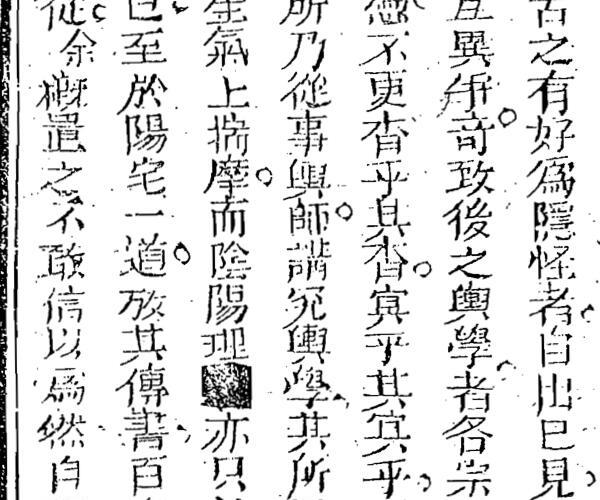 古之有好為隱怪者自出己見
互異爭奇致後之輿學者各崇
不更杳乎其杳冥乎其冥乎
所乃從事輿師講究輿學其所
生氣上揣摩而陰陽理亦只
已至於陽宅一道放其傳書百
從余概置之不敢信以為然自